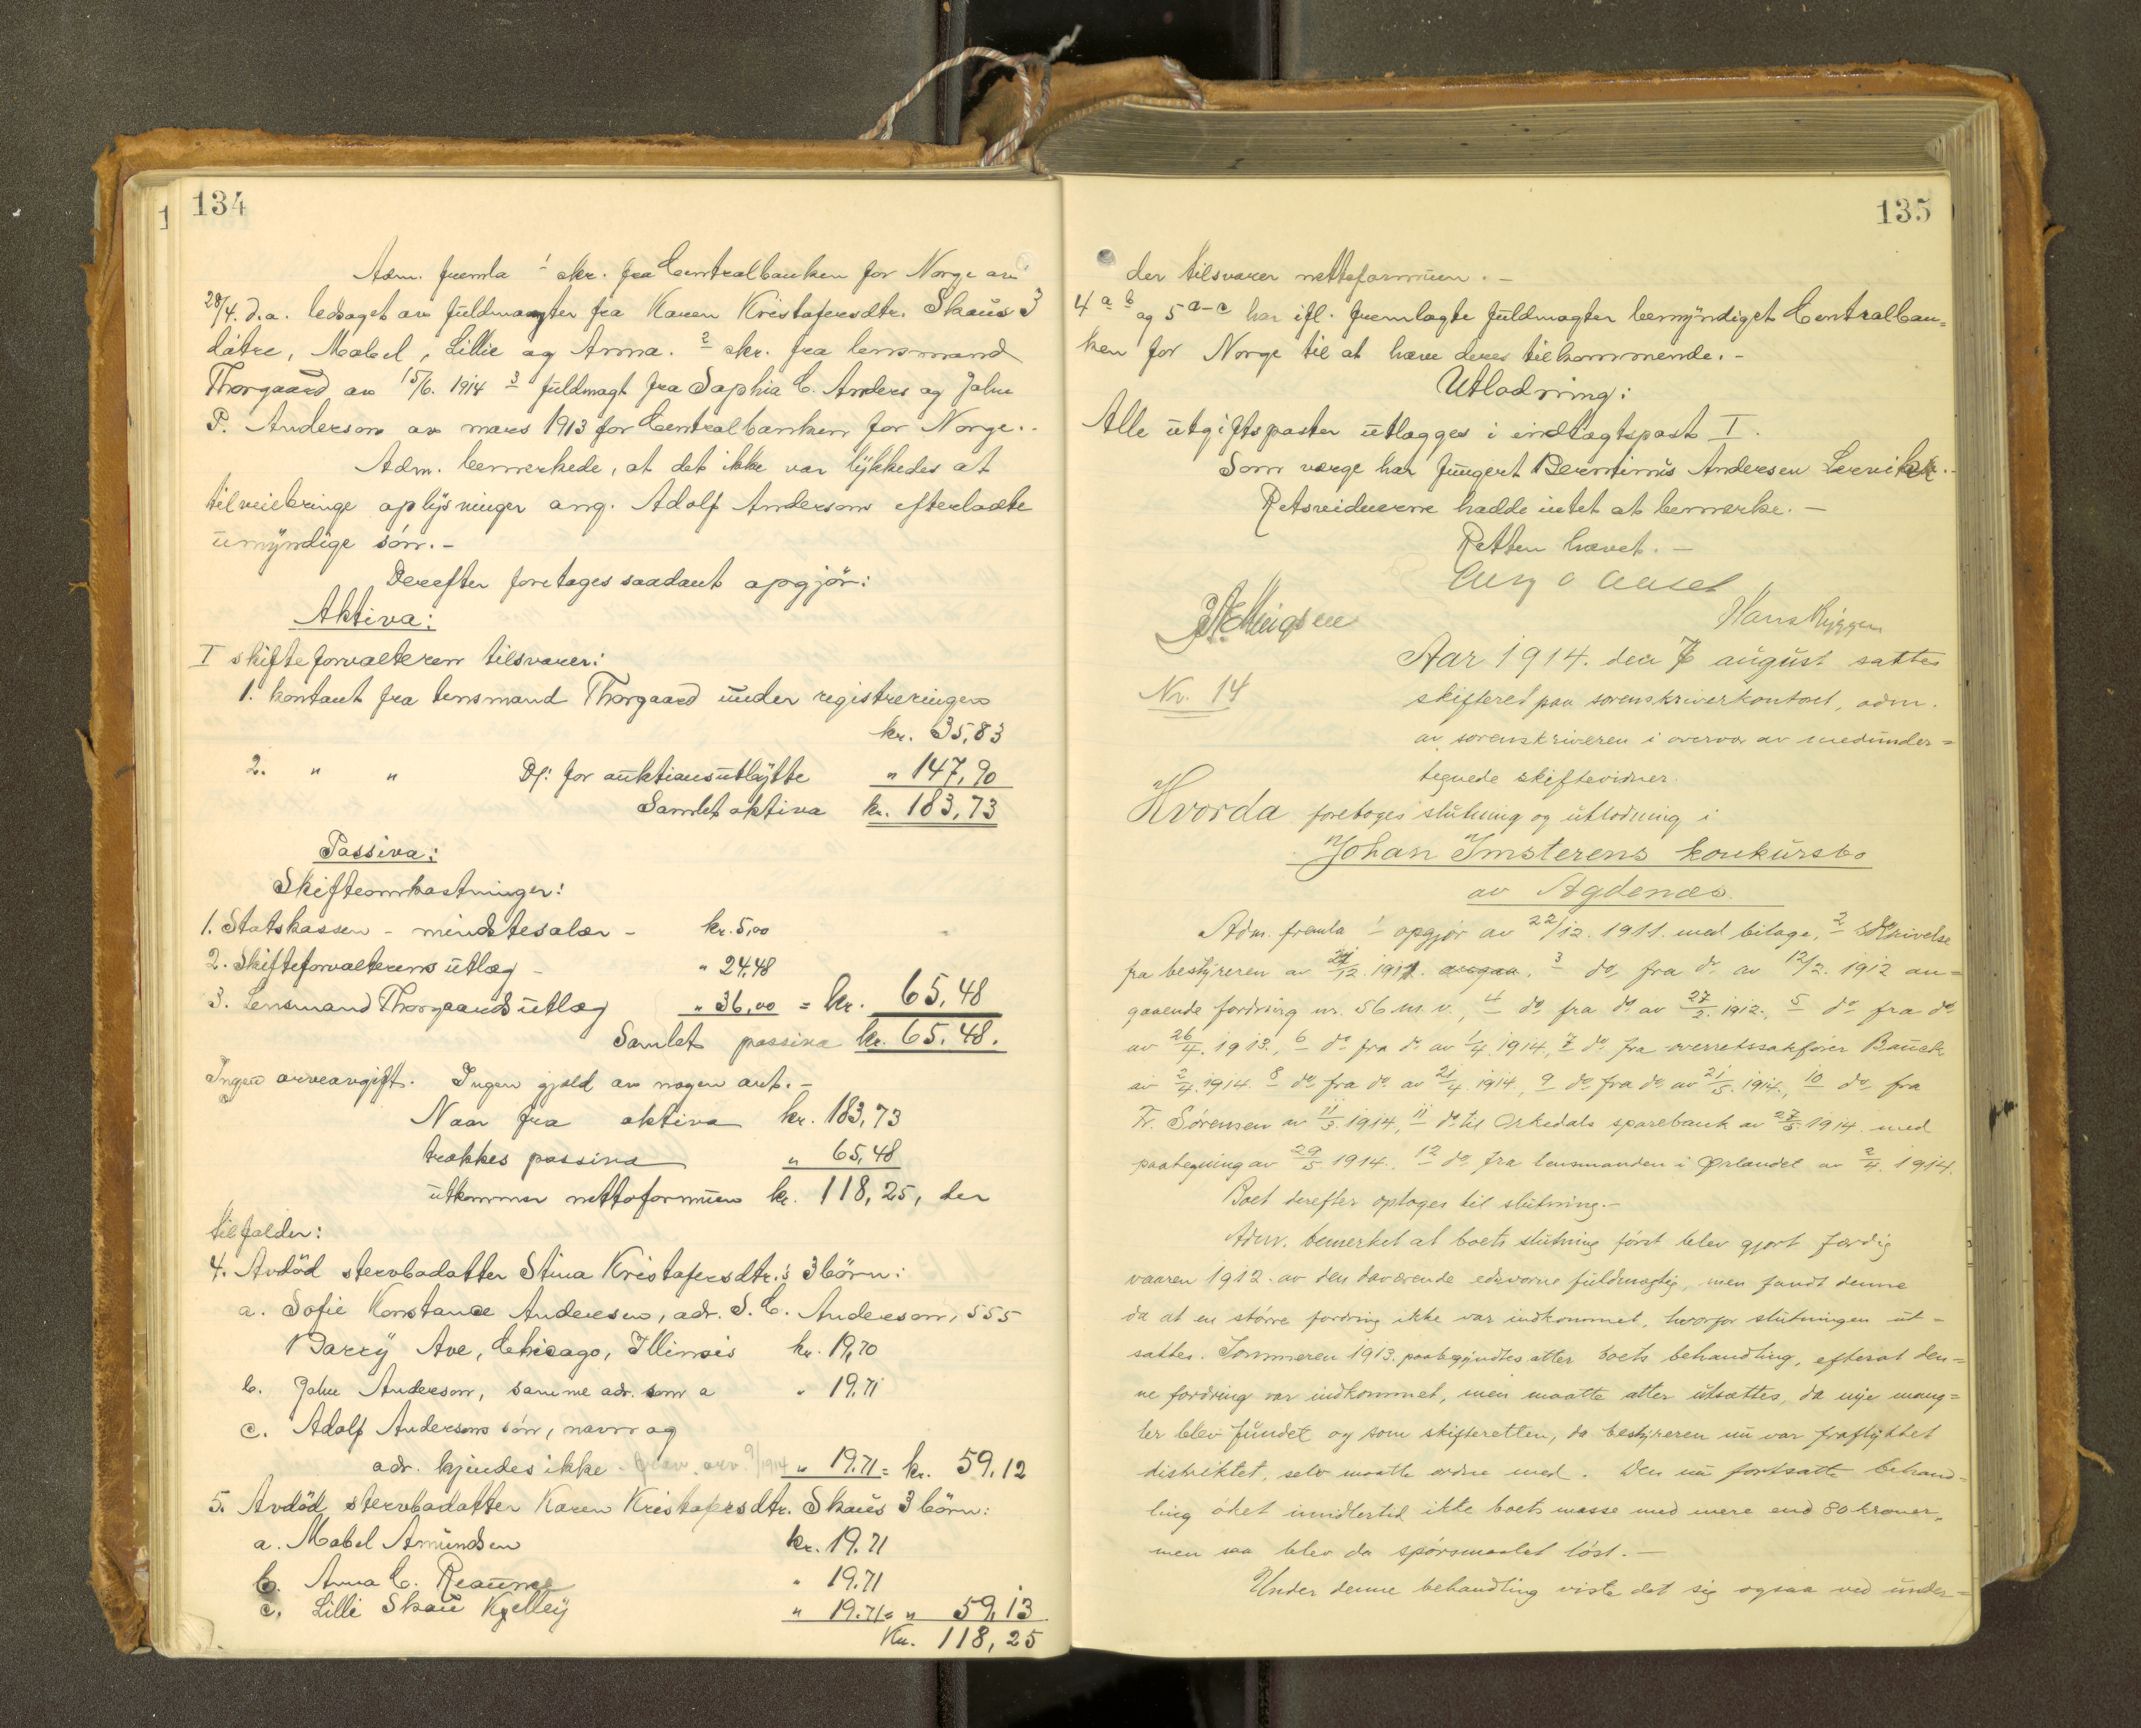 134
Adm. fremla 1 skr. fra Centralbanken for Norge av
28/4. d.a. ledsaget av fuldmagter fra Karen Kristofersdtr. Skaus 3
døtre, Mabel, Lillie og Anna. 2 skr. fra lensmand
Thorgaard av 15/6. 1914 3 fuldmagt fra Sophia C. Anders og John
P. Anderson av mars 1913 for Centralbanken for Norge.-
Adm. bemerkede, at det ikke var lykkedes at
tilveiebringe oplysninger ang. Adolf Andersons efterladte
umyndige sön.-
Derefter foretages saadant opgjör:
Aktiva:
I skifteforvalteren tilsvarer:
1. kontant fra lensmand Thorgaard under registreringen
kr. 35,83
2. " " Do: for auktionsutbytte " 147,90
Samlet aktiva kr. 183,73
Passiva:
Skifteomkostninger:
1. Statskassen - mindstesalær - kr. 5,00
2. Skifteforvalterens utlæg - " 24,48
3. Lensmand Thorgaards utlæg " 36,00 = kr. 65,48
Samlet passiva kr. 65,48.
Ingen arveavgift. Ingen gjæld av nogen art.-
Naar fra aktiva kr. 183,73
trækkes passiva " 65,48
utkommer nettoformuen kr. 118,25, der
tilfalder:
4. Avdöd stervbodatter Stina Kristofersdtr.'s 3 börn:
a. Sofie Konstance Andersen, adr. S. C. Anderson, 555
Barry Ave, Chicago, Illinois kr. 19,70
b. John Anderson, samme adr. som a " 19,71
c. Adolf Andersons sön, navn og
adr. kjendes ikke " 19,71 = kr. 59,12
5. Avdöd stervbodatter Karen Kristofersdtr. Skaus 3 börn:
a. Mabel Amundsen kr. 19,71
b. Anna C. Reaume " 19,71
c. Lilli Skau Kelley " 19,71 = " 59,13
Kr. 118,25
135
der tilsvarer nettoformuen.-
4 a b og 5 a-c har ifl. fremlagte fuldmagter bemyndiget Centralban=
ken for Norge til at hæve deres tilkommende.-
Utlodning:
Alle utgiftsposter utlægges i indtægtspost I.
Som værge har fungert Berntinus Andersen Lervik.-
Retsvidnerne hadde intet at bemerke.-
Retten hævet.-
Hans Ryggen
Aar 1914. den 7 august sattes
Nr. 14
skifteret paa sorenskriverkontoret, adm.
av sorenskriveren i overvær av medunder=
tegnede skiftevidner.
Hvorda foretoges slutning og utlodning i
Johan Imsterens konkursbo
av Agdenæs.
Adm. fremla 1 opgjør av 22/12. 1911. med bilage, 2 Skrivelse
fra bestyreren av 12. 1911. 3 do fra do av 12/2. 1912 an=
gaaende fordring nr. 56 m.v., 4 do fra do av 27/2. 1912., 5 do fra do
av 26/4. 1913., 6 do fra do av 1/4. 1914, 7 do fra overretssakfører Bauck
av 2/4. 1914. 8 do fra do av 21/4. 1914, 9 do fra do av 21/5. 1914, 10 do fra
Fr. Sørensen av 11/3. 1914, 11 do til Orkedals sparebank av 27/5. 1914. med
paategning av 29/5 1914., 12 do fra lensmanden i Ørlandet av 2/4. 1914.
Boet derefter optoges til slutning.-
Adm. bemerket at boets slutning først blev gjort færdig
vaaren 1912. av den daværende edsvorne fuldmægtig, men fandt denne
da at en større fordring ikke var indkommet, hvorfor slutningen ut=
sattes. Sommeren 1913. paabegyndtes atter boets behandling, efterat den=
ne fordring var indkommet, men maatte atter utsættes, da nye mang=
ler blev fundet og som skifteretten, da bestyreren nu var fraflyttet
distriktet, selv maatte ordne med. Den nu fortsatte behand=
ling øket imidlertid ikke boets masse med mere end 80 kroner,
men saa blev da spørsmaalet løst.-
Under denne behandling viste det sig ogsaa ved under=